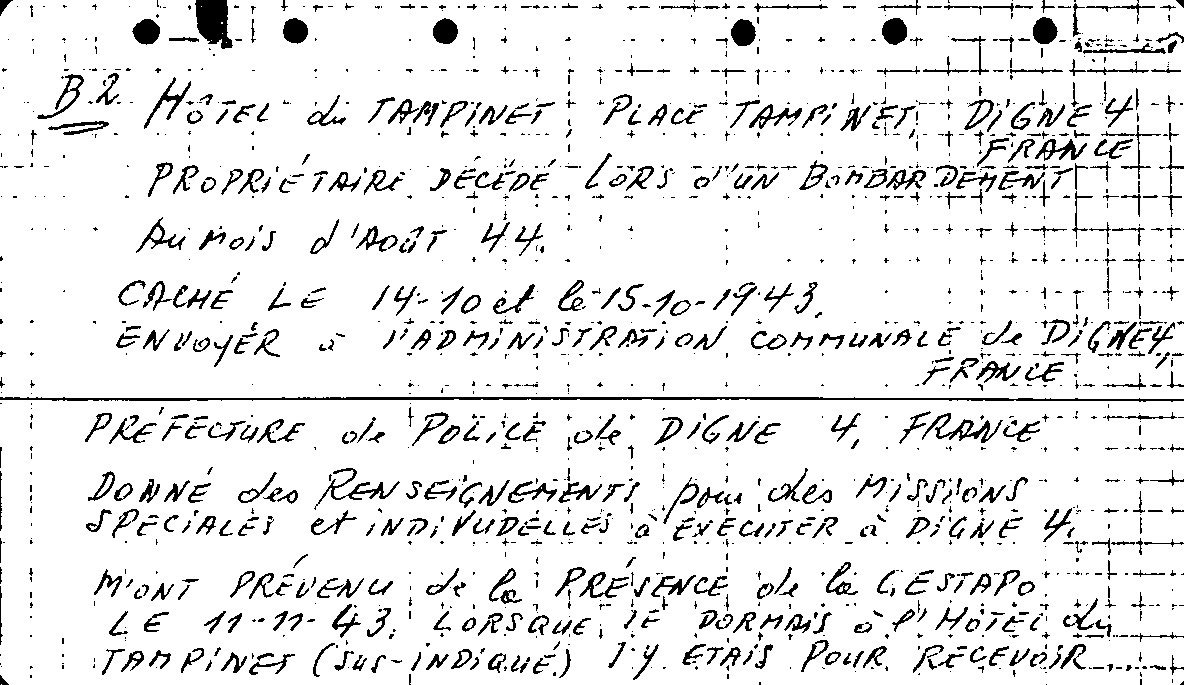 B2 HÔTEL du TAMPINET, PLACE TAMPINET, DIGNE 4
FRANCE
PROPRIÉTAIRE DÉCÉDÉ LORS d'UN BOMBARDEMENT
AU MOIS d'AOÛT 44.
CACHÉ LE 14-10 et le 15-10-1943.
ENVOYÉR à l'ADMINISTRATION COMMUNALE de DIGNE 4,
FRANCE
PRÉFECTURE de POLICE de DIGNE 4, FRANCE
DONNÉ des RENSEIGNEMENTS pour des MISSIONS
SPECIALES et INDIVUDELLES à EXECUTER à DIGNE 4.
M'ONT PRÉVENU de la PRÉSENCE de la GESTAPO
LE 11-11-43, LORSQUE JE DORMAIS à l'HÔTEL du
TAMPINET (SUS-INDIQUÉ) J'Y ETAIS POUR RECEVOIR....